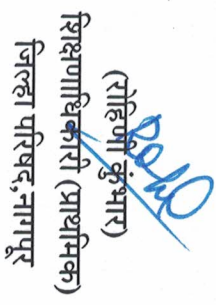 (रोहिणी कुंभार)
शिक्षणाधिकारी (प्राथमिक)
जिल्हा परिषद,नागपूर